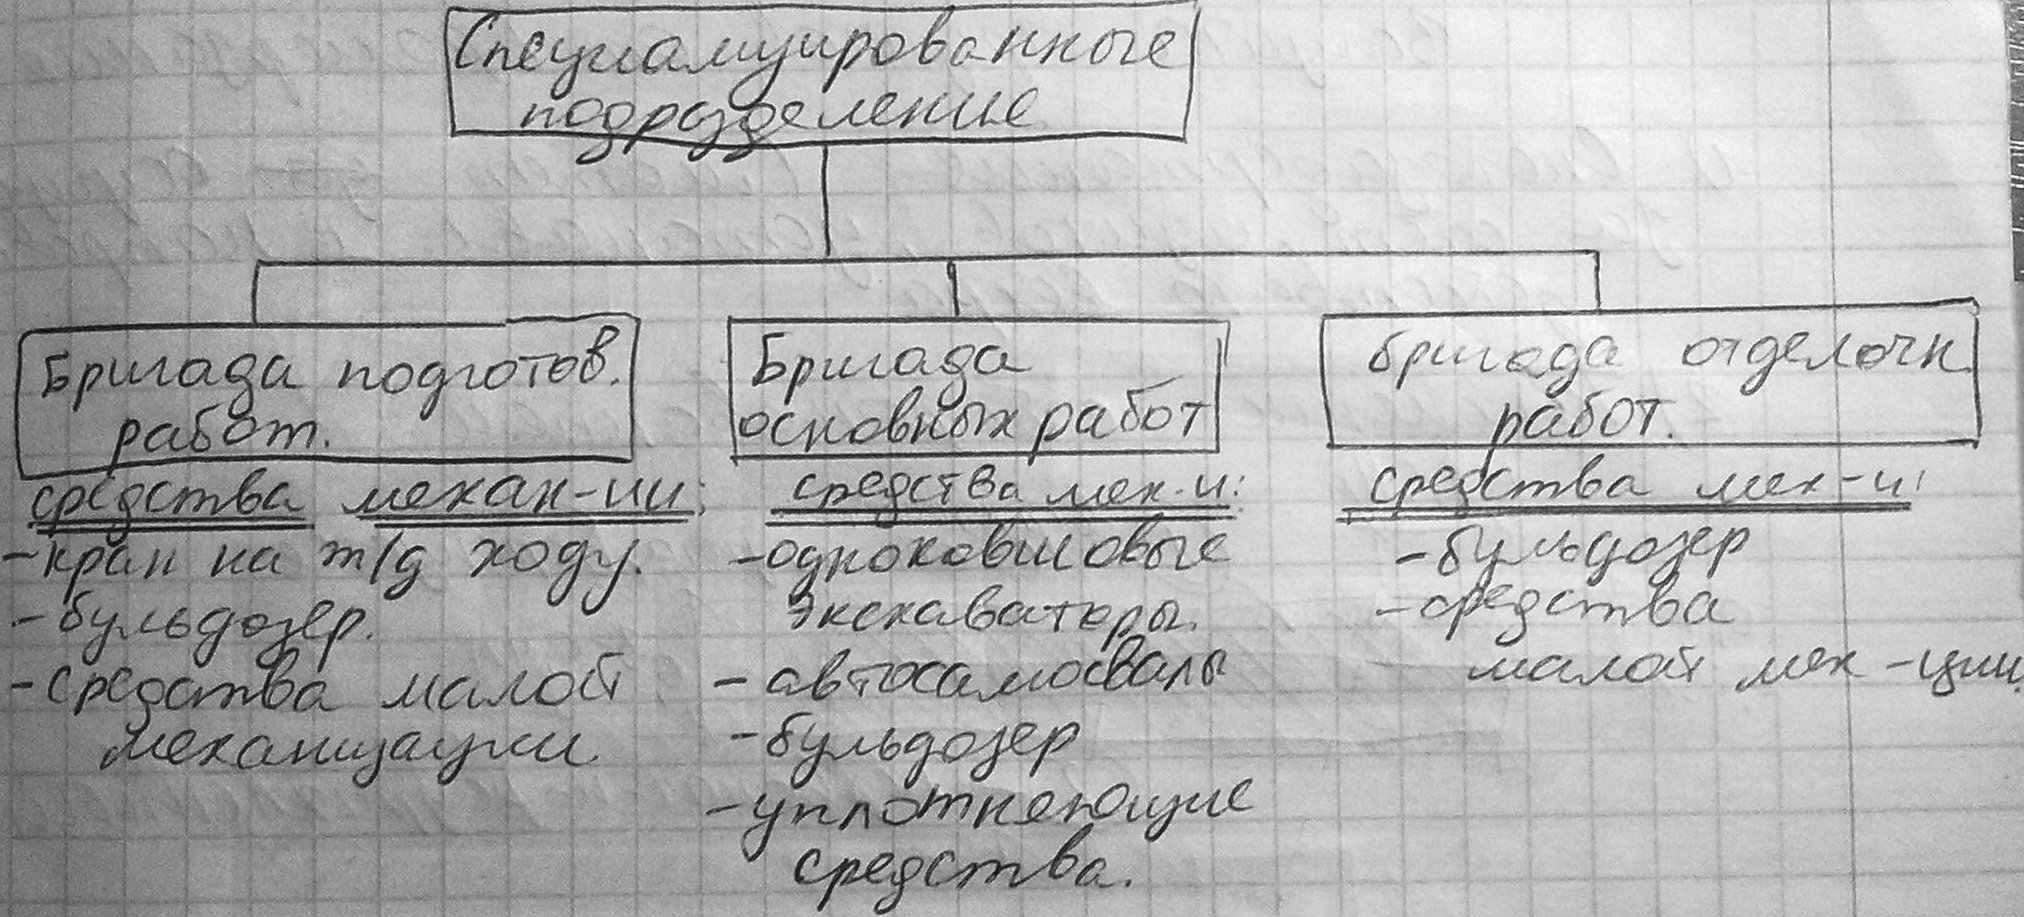 Специализированные
подразделение
Бригада подготов.
работ.
средства механ-ии:
-кран на т/д ходу.
-бульдозер.
-средства малой
механизации
Бригада
основных работ
средства мех-и:
-одноковшовые
экскаваторы.
-автосамосвалы
-бульдозер
-уплотняющие
средства.
бригада отделочн.
работ.
средства мех-и:
-бульдозер
-средства
малой мех-ции.